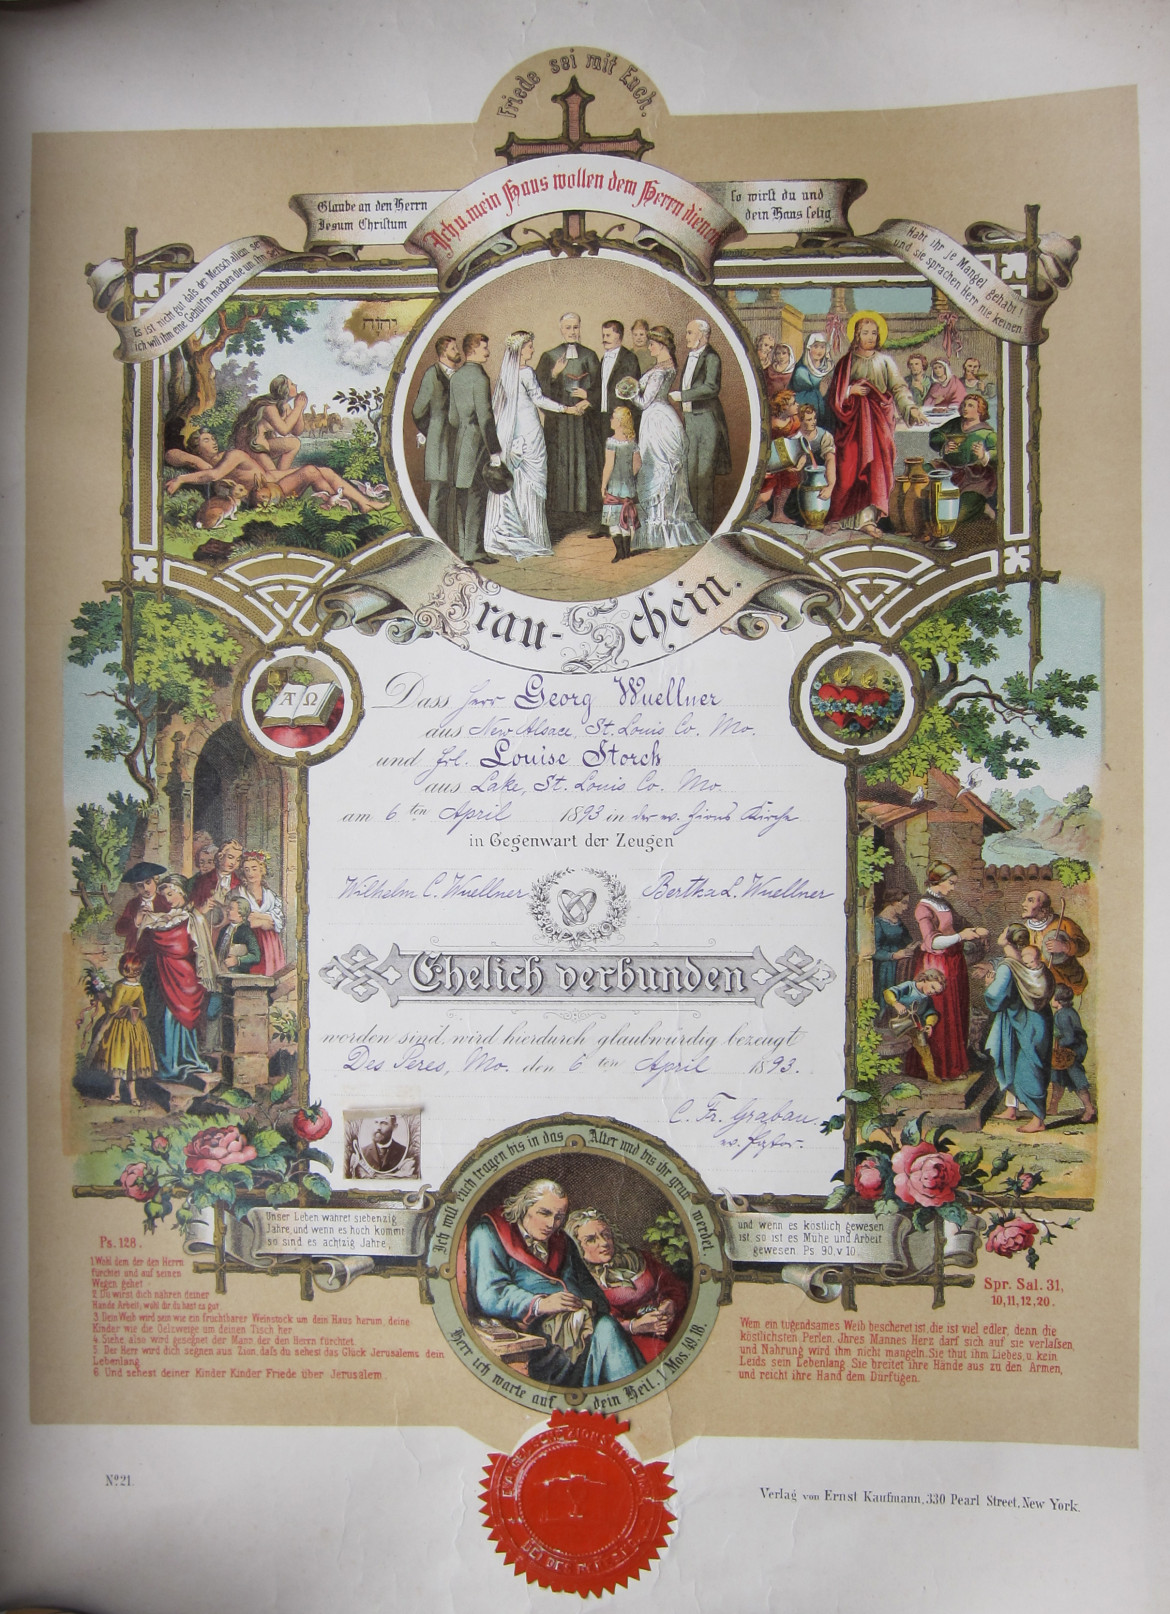 Friede sei mit Euch.
Ich u. mein Haus wollen dem Herrn dienen
Glaube an den Herrn
Jesum Christum
so wirst du und
dein Haus selig
Es ist nicht gut, daß der Mensch allein sei
ich will ihm eine Gehülfin machen die um ihn sei
Habt ihr je Mangel gehabt!
und sie sprachen Herr nie keinen
יהוה
Trau-Schein.
A Ω
Dass Herr Georg Wuellner
aus New Alsace, St. Louis Co. Mo.
und Frl. Louise Storck
aus Lake, St. Louis Co. Mo.
am 6ten April 1893 in der ev. Zions Kirche
in Gegenwart der Zeugen
Wilhelm C. Wuellner Bertha L. Wuellner
Ehelich verbunden
worden sind, wird hierdurch glaubwürdig bezeugt
Des Peres, Mo. den 6ten April 1893.
C. Fr. Grabau
Ich will euch tragen bis in das Alter und bis ihr grau werdet.
Herr ich warte auf dein Heil. 1 Mos. 49. 18.
Unser Leben währet siebenzig
Jahre, und wenn es hoch kommt
so sind es achtzig Jahre,
und wenn es köstlich gewesen
ist, so ist es Mühe und Arbeit
gewesen Ps. 90. v. 10.
Ps. 128.
1. Wohl dem der den Herrn
fürchtet und auf seinen
Wegen gehet
2. Du wirst dich nähren deiner
Hände Arbeit; wohl dir du hast es gut
3. Dein Weib wird sein wie ein fruchtbarer Weinstock um dein Haus herum, deine
Kinder wie die Oelzweige um deinen Tisch her
4. Siehe, also wird gesegnet der Mann, der den Herrn fürchtet.
5. Der Herr wird dich segnen aus Zion, daß du sehest das Glück Jerusalems dein
Lebenlang.
6. Und sehest deiner Kinder Kinder Friede über Jerusalem.
Spr. Sal. 31,
10, 11, 12, 20.
Wem ein tugendsames Weib bescheret ist, die ist viel edler, denn die
köstlichsten Perlen. Ihres Mannes Herz darf sich auf sie verlassen,
und Nahrung wird ihm nicht mangeln. Sie thut ihm Liebes, u. kein
Leids sein Lebenlang. Sie breitet ihre Hände aus zu den Armen,
und reicht ihre Hand dem Dürftigen.
No 21.
Verlag von Ernst Kaufmann, 330 Pearl Street, New York.